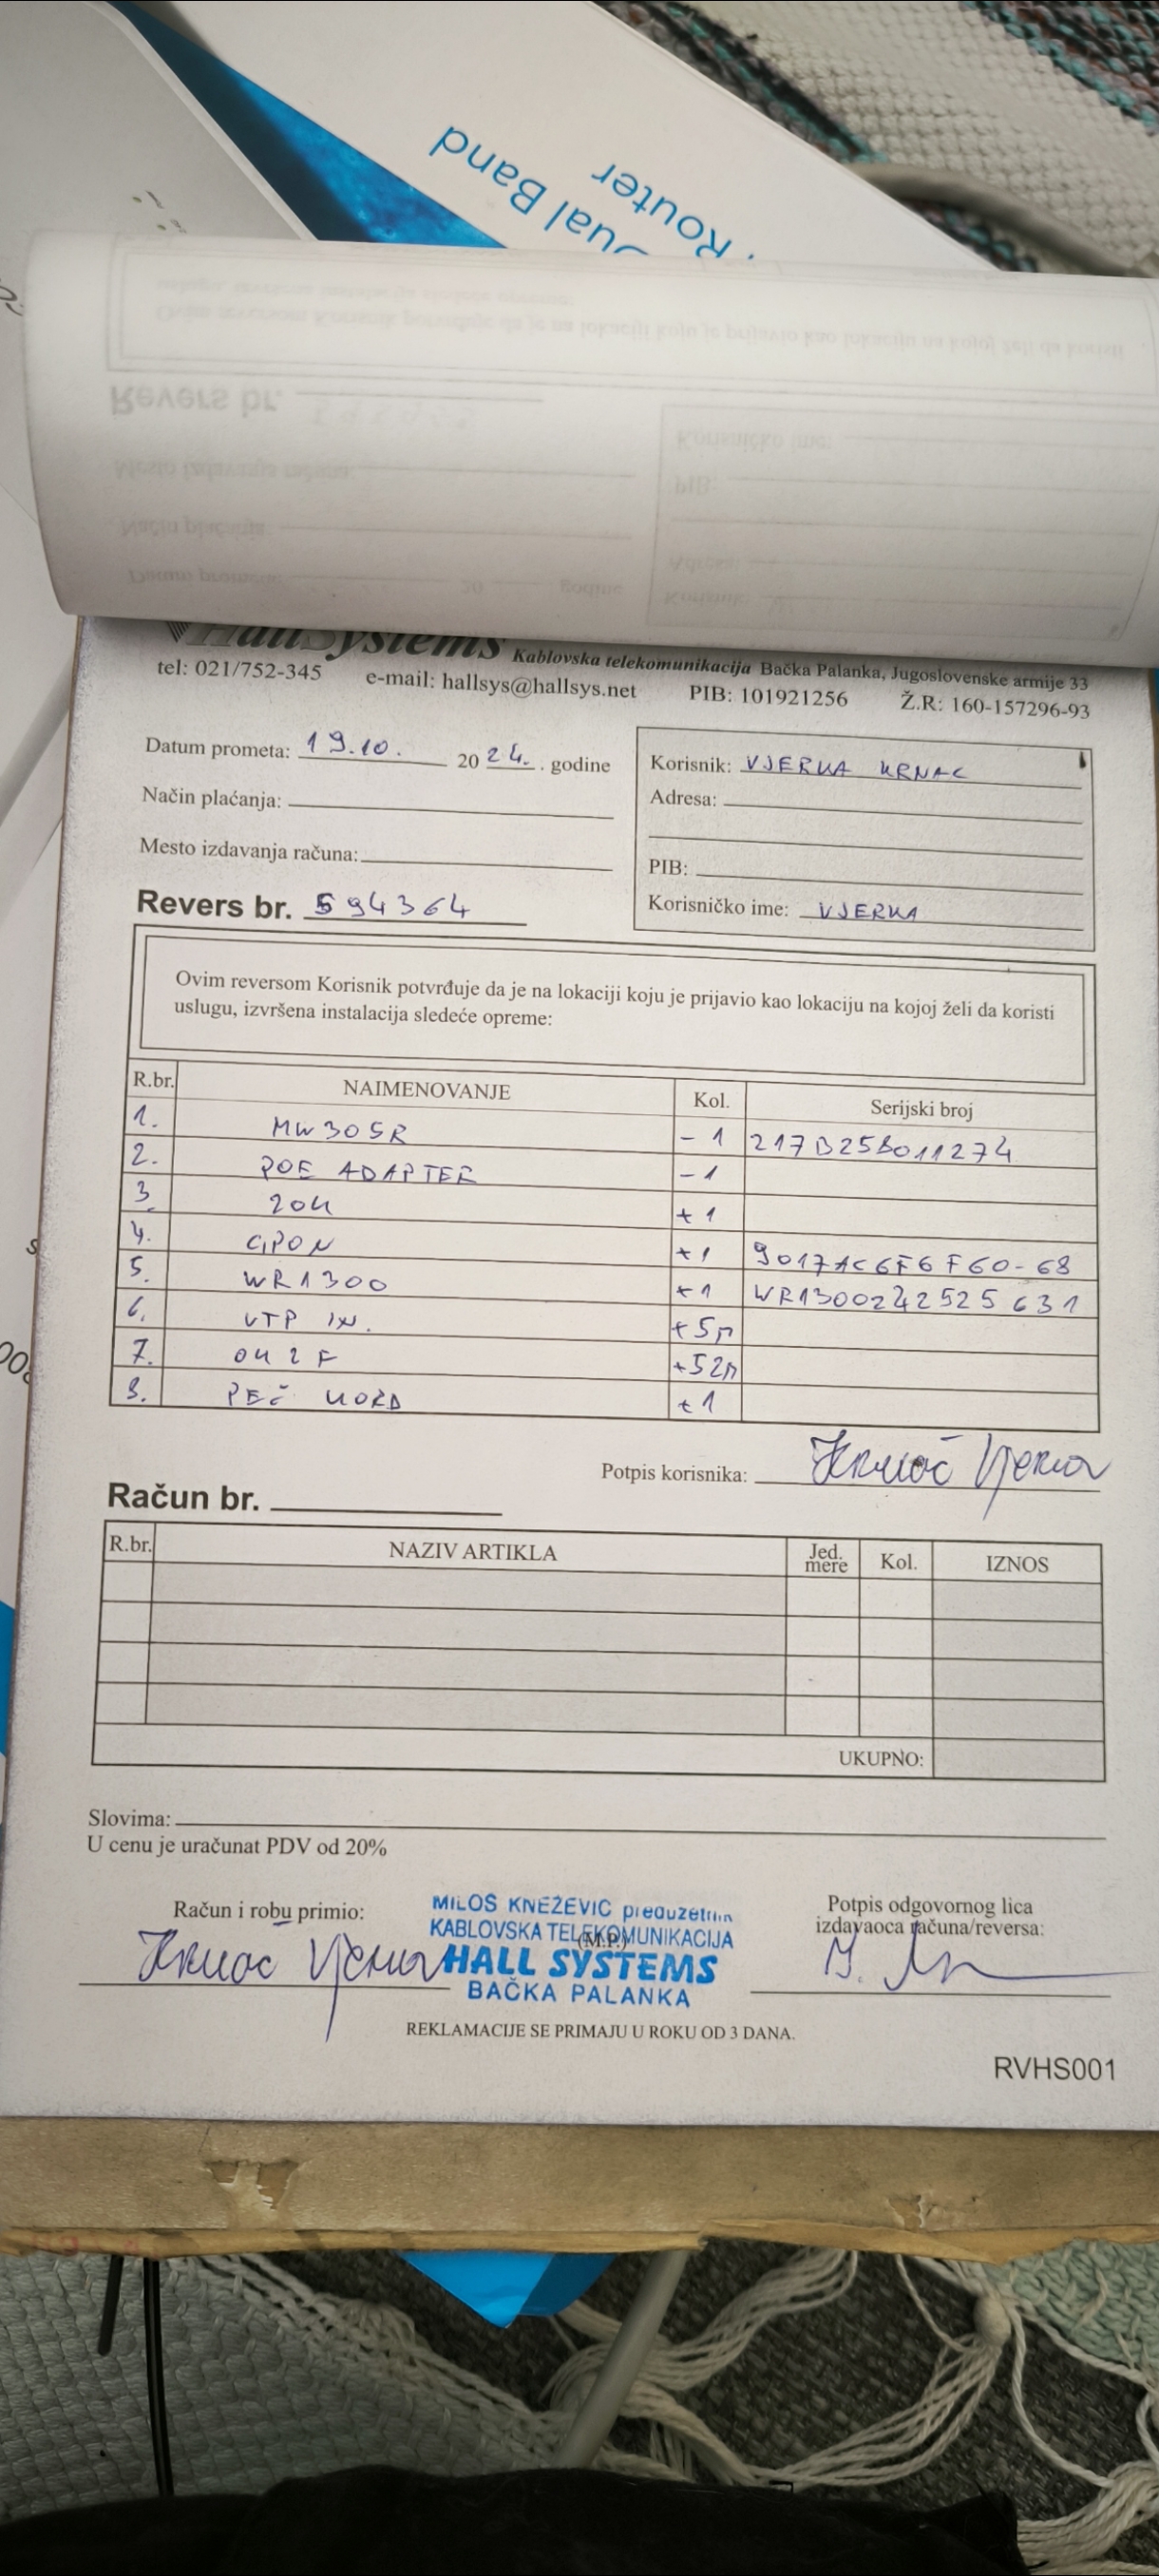 Dual Band
Router
Revers br.
HallSystems Kablovska telekomunikacija Bačka Palanka, Jugoslovenske armije 33
tel: 021/752-345 e-mail: hallsys@hallsys.net PIB: 101921256 Ž.R: 160-157296-93
Datum prometa: 19.10. 2024. godine
Način plaćanja:
Mesto izdavanja računa:
Revers br. 594364
Korisnik: VJERKA KRNAC
Adresa:
PIB:
Korisničko ime: VJERKA
Ovim reversom Korisnik potvrđuje da je na lokaciji koju je prijavio kao lokaciju na kojoj želi da koristi
uslugu, izvršena instalacija sledeće opreme:
R.br. NAIMENOVANJE Kol. Serijski broj
1. MW305R - 1 217B25B011274
2. POE ADAPTER - 1
3. ZOK + 1
4. GPON +1 9017AC6F6F60-68
5. WR1300 +1 WR1300242525631
6. UTP IN. +5m
7. OK 2F +52m
8. PEČ KORD +1
Potpis korisnika: Krnač Vjerka
Račun br.
R.br. NAZIV ARTIKLA Jed. mere Kol. IZNOS
UKUPNO:
Slovima:
U cenu je uračunat PDV od 20%
Račun i robu primio:
Krnač Vjerka
MILOŠ KNEŽEVIĆ preduzetnik
KABLOVSKA TELEKOMUNIKACIJA
(M.P.)
HALL SYSTEMS
BAČKA PALANKA
Potpis odgovornog lica
izdavaoca računa/reversa:
REKLAMACIJE SE PRIMAJU U ROKU OD 3 DANA.
RVHS001